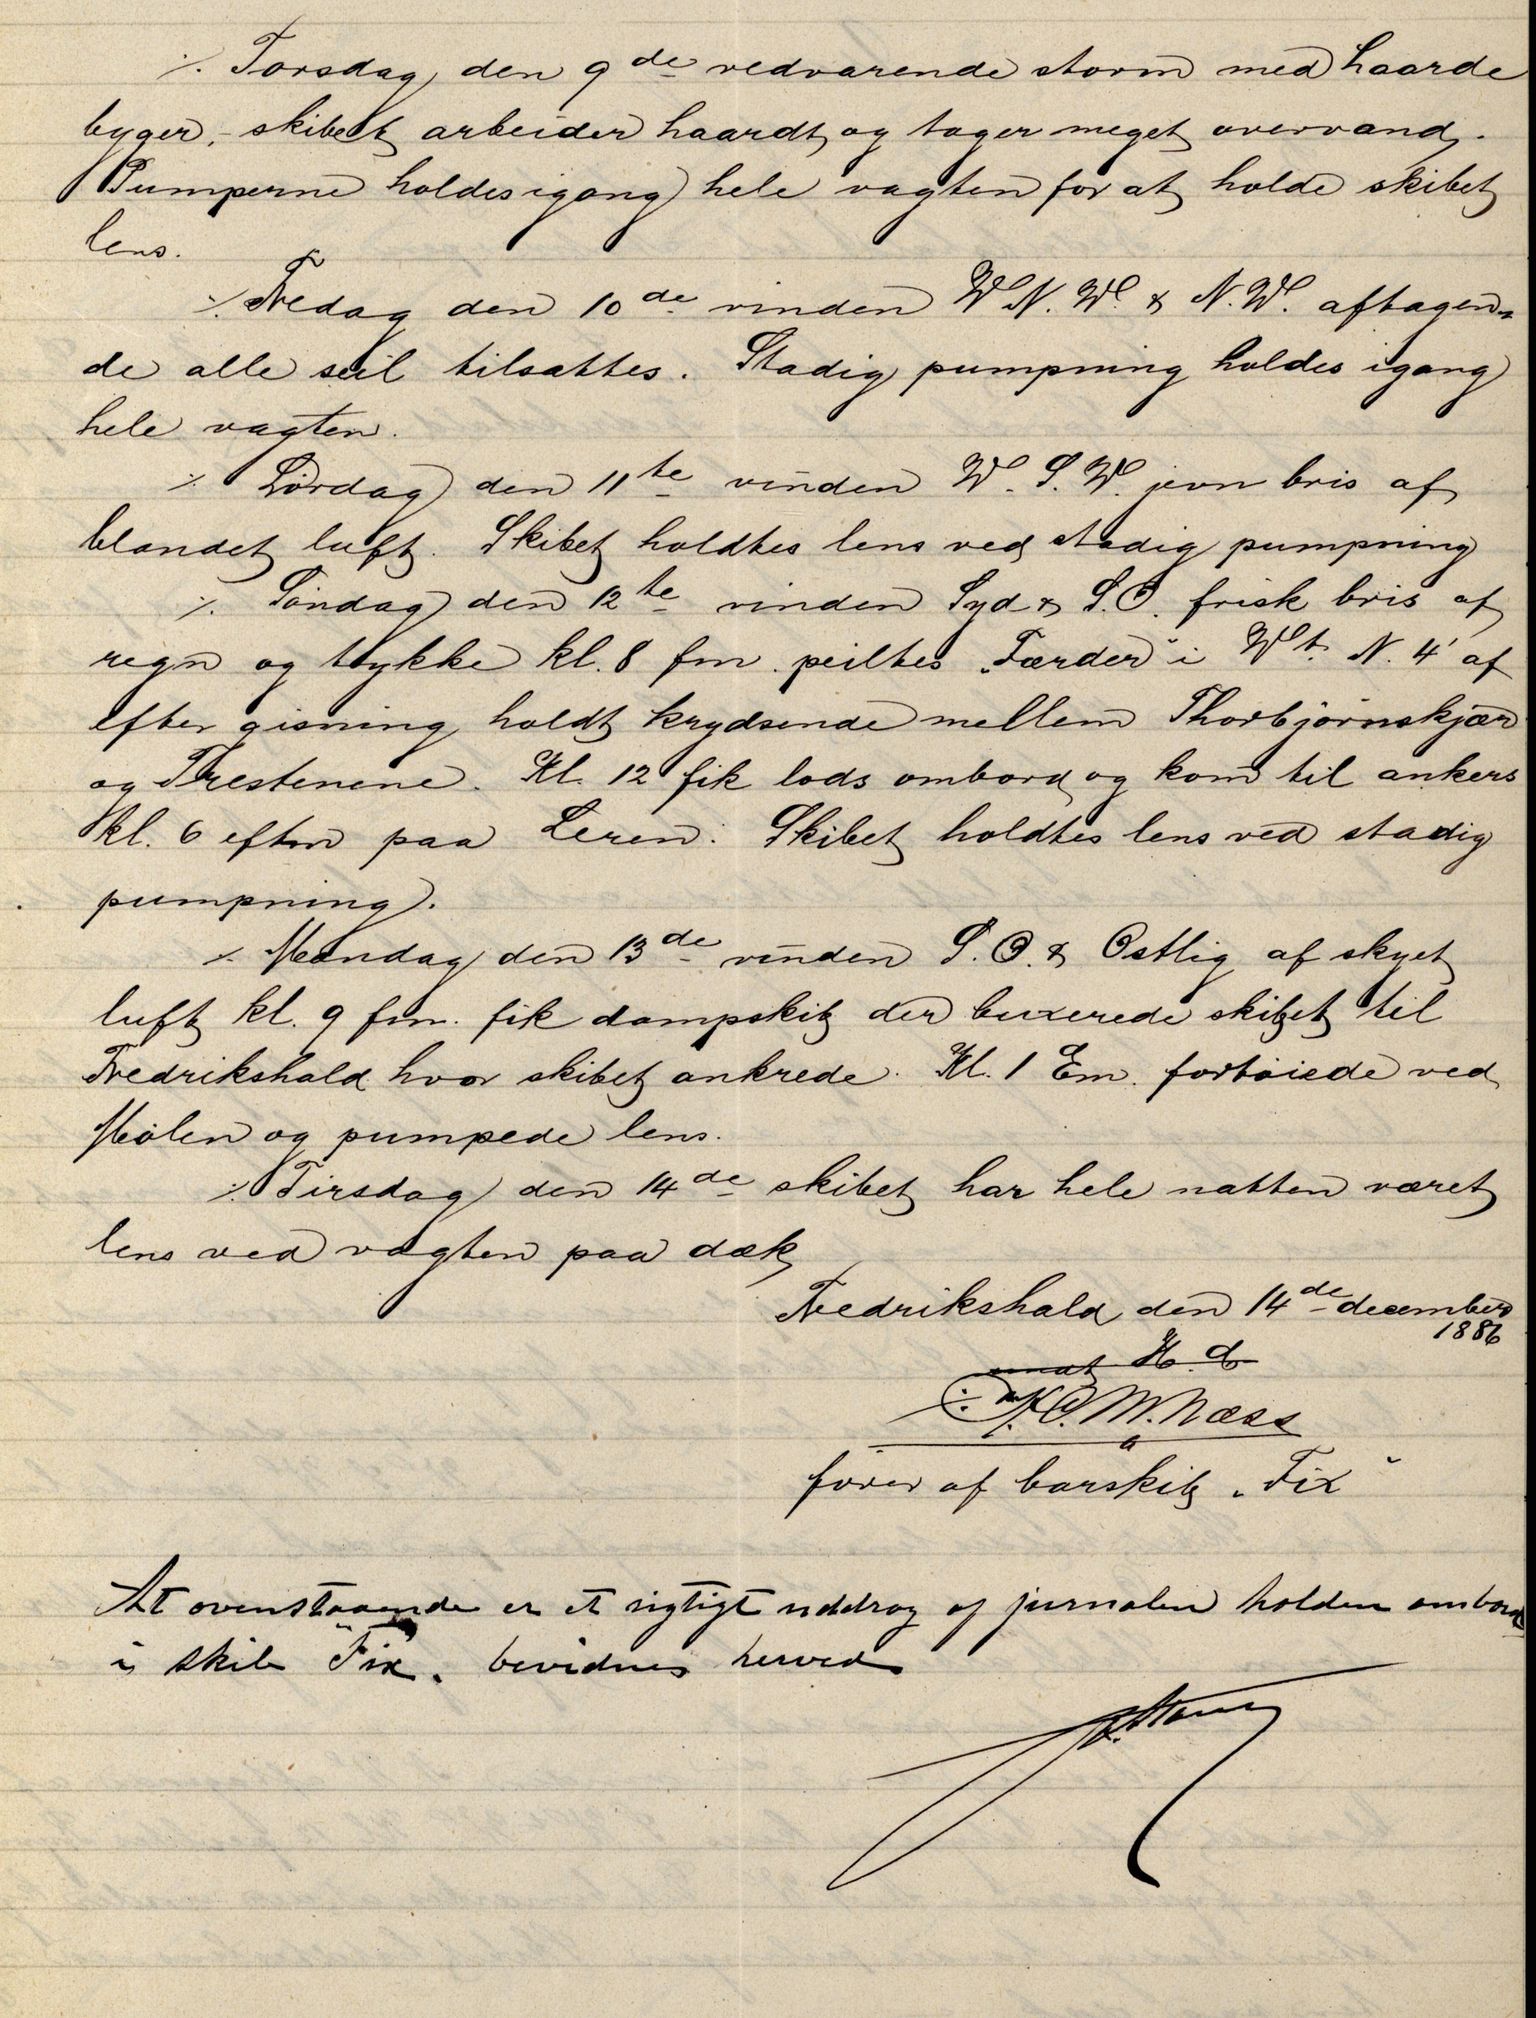 ⁒ Torsdag den 9de vedvarende storm med haarde
byger, - skibet arbeider haardt og tager meget overvand.
Pumperne holdes igang hele vagten for at holde skibet
lens.
⁒ Fredag den 10de vinden W.N.W. & N.W. aftagen=
de alle seil tilsattes. Stadig pumpning holdes igang
hele vagten.
⁒ Lørdag den 11te vinden W.S.W. jevn bris af
blandet luft. Skibet holdtes lens ved stadig pumpning
⁒ Søndag den 12te vinden Syd & S.O. frisk bris af
regn og tykke kl. 8 fm. peiltes „Færder“ i Wt. N. 4' af
efter gisning, holdt krydsende mellem Thorbjørnskjær
og Trestenene. Kl. 12 fik lods ombord og kom til ankers
kl. 6 eftm paa Leren. Skibet holdtes lens ved stadig
pumpning.
⁒ Mandag den 13de vinden S.O. & Ostlig af skyet
luft kl. 9 fm. fik dampskib der buxerede skibet til
Fredrikshald hvor skibet ankrede. Kl. 1 Em. fortøiede ved
Mølen og pumpede lens.
⁒ Tirsdag den 14de skibet har hele natten været
lens ved vagten paa dæk
Fredrikshald den 14de december
1886
M. Næss
fører af barskib „Fix“
At ovenstaaende er et rigtigt uddrag af jurnalen holden ombord
i skib "Fix„ bevidnes herved